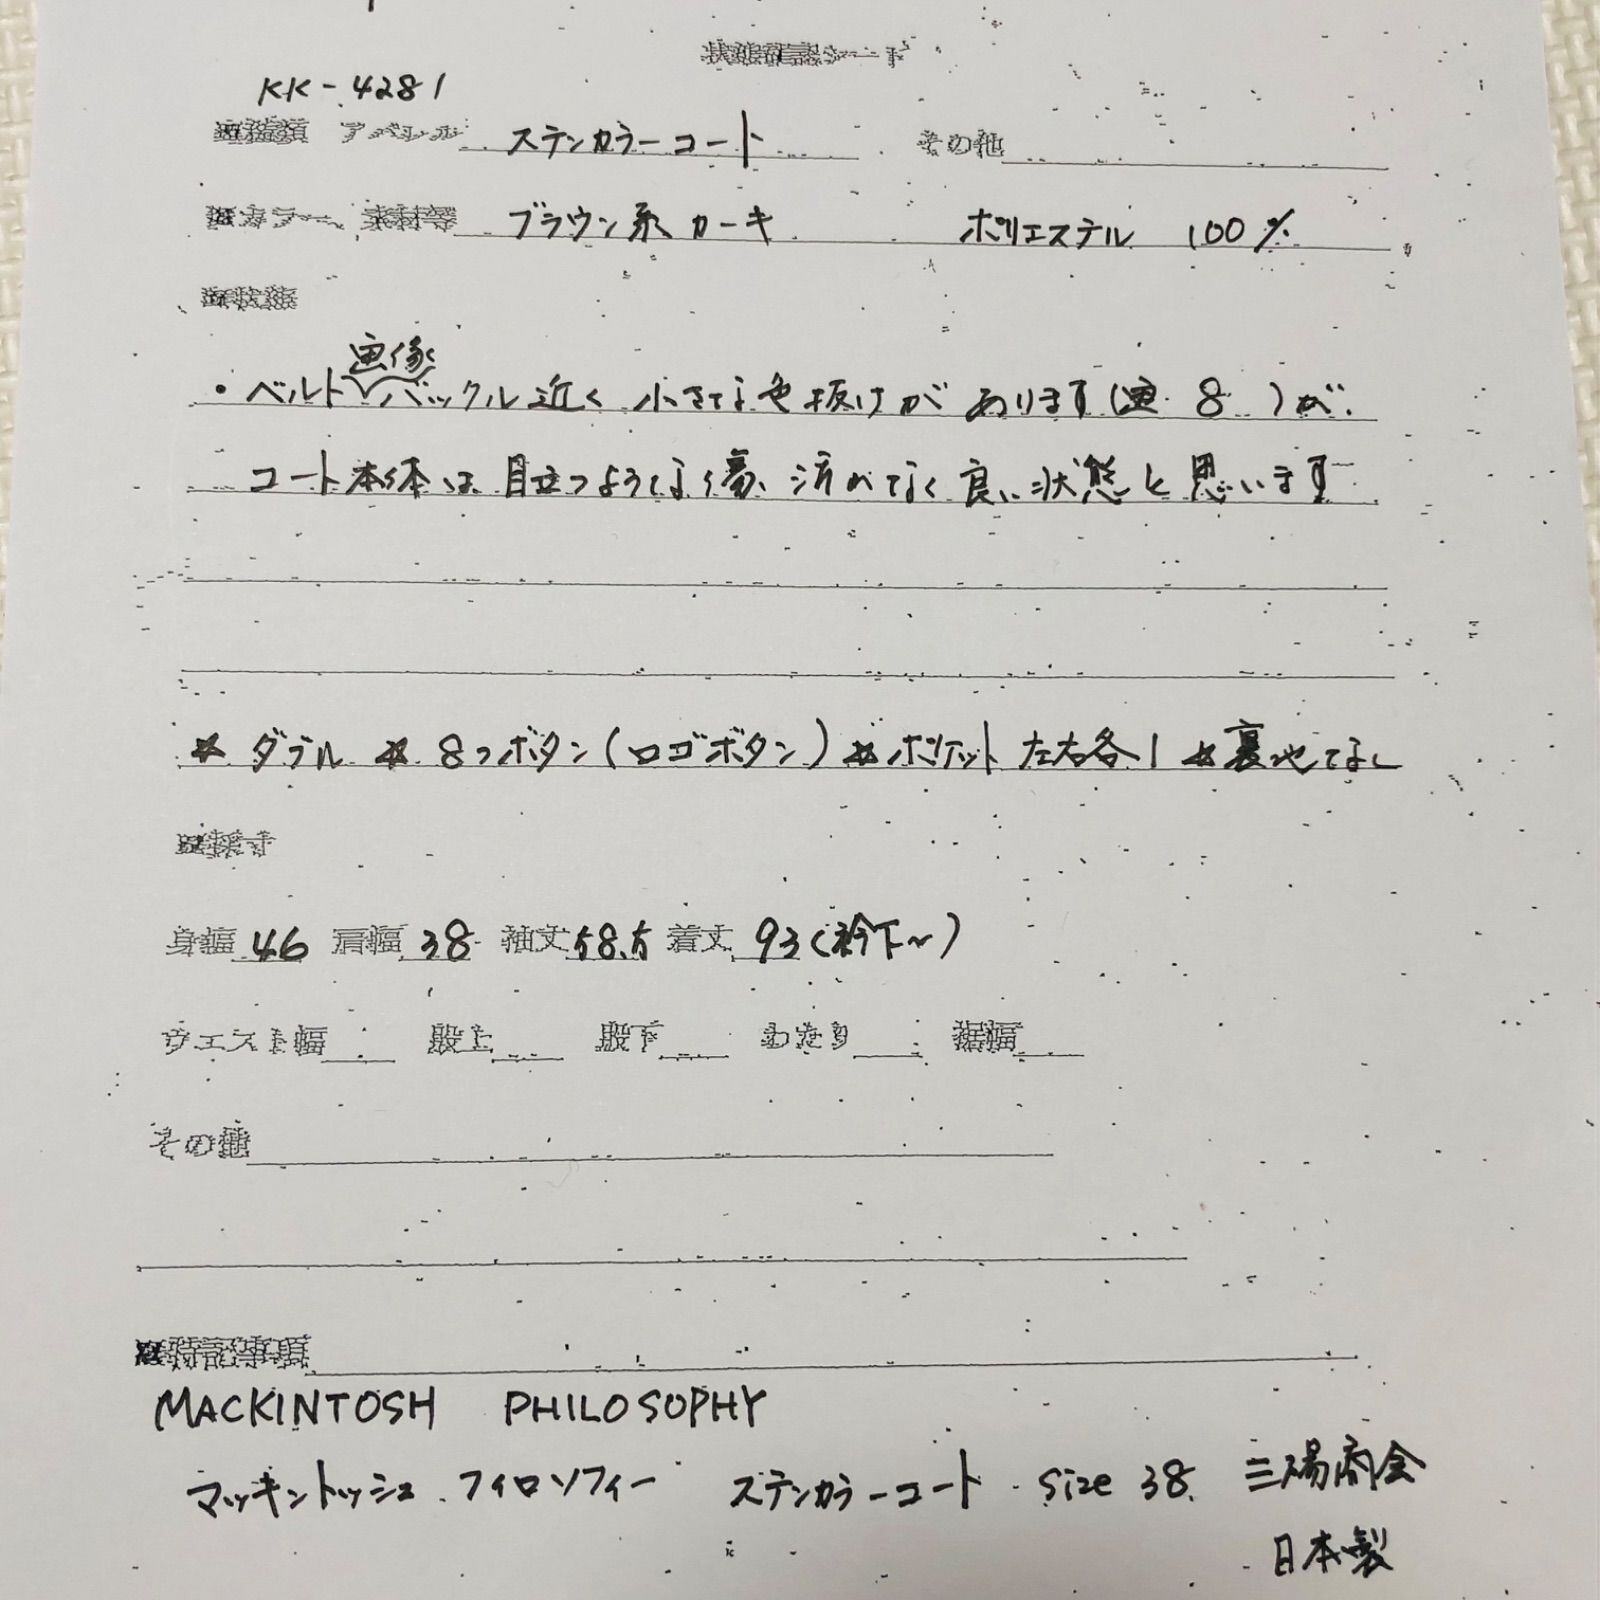 状態確認シート
KK-4281
■種類 アパレル ステンカラーコート その他
■カラー、素材等 ブラウン系 カーキ ポリエステル 100%
■状態
画像
・ベルト バックル近く 小さな色抜けがあります(画 8 )が、
コート本体は 目立つような傷、汚れなく良い状態と思います
★ ダブル ★ 8つボタン(ロゴボタン) ★ポケット 左右各1 ★裏地なし
■採寸
身幅 46 肩幅 38 袖丈 58.5 着丈 93(衿下〜)
ウエスト幅 股上 股下 わたり 裾幅
その他
■特記事項
MACKINTOSH PHILOSOPHY
マッキントッシュ フィロソフィー ステンカラーコート size 38 三陽商会
日本製